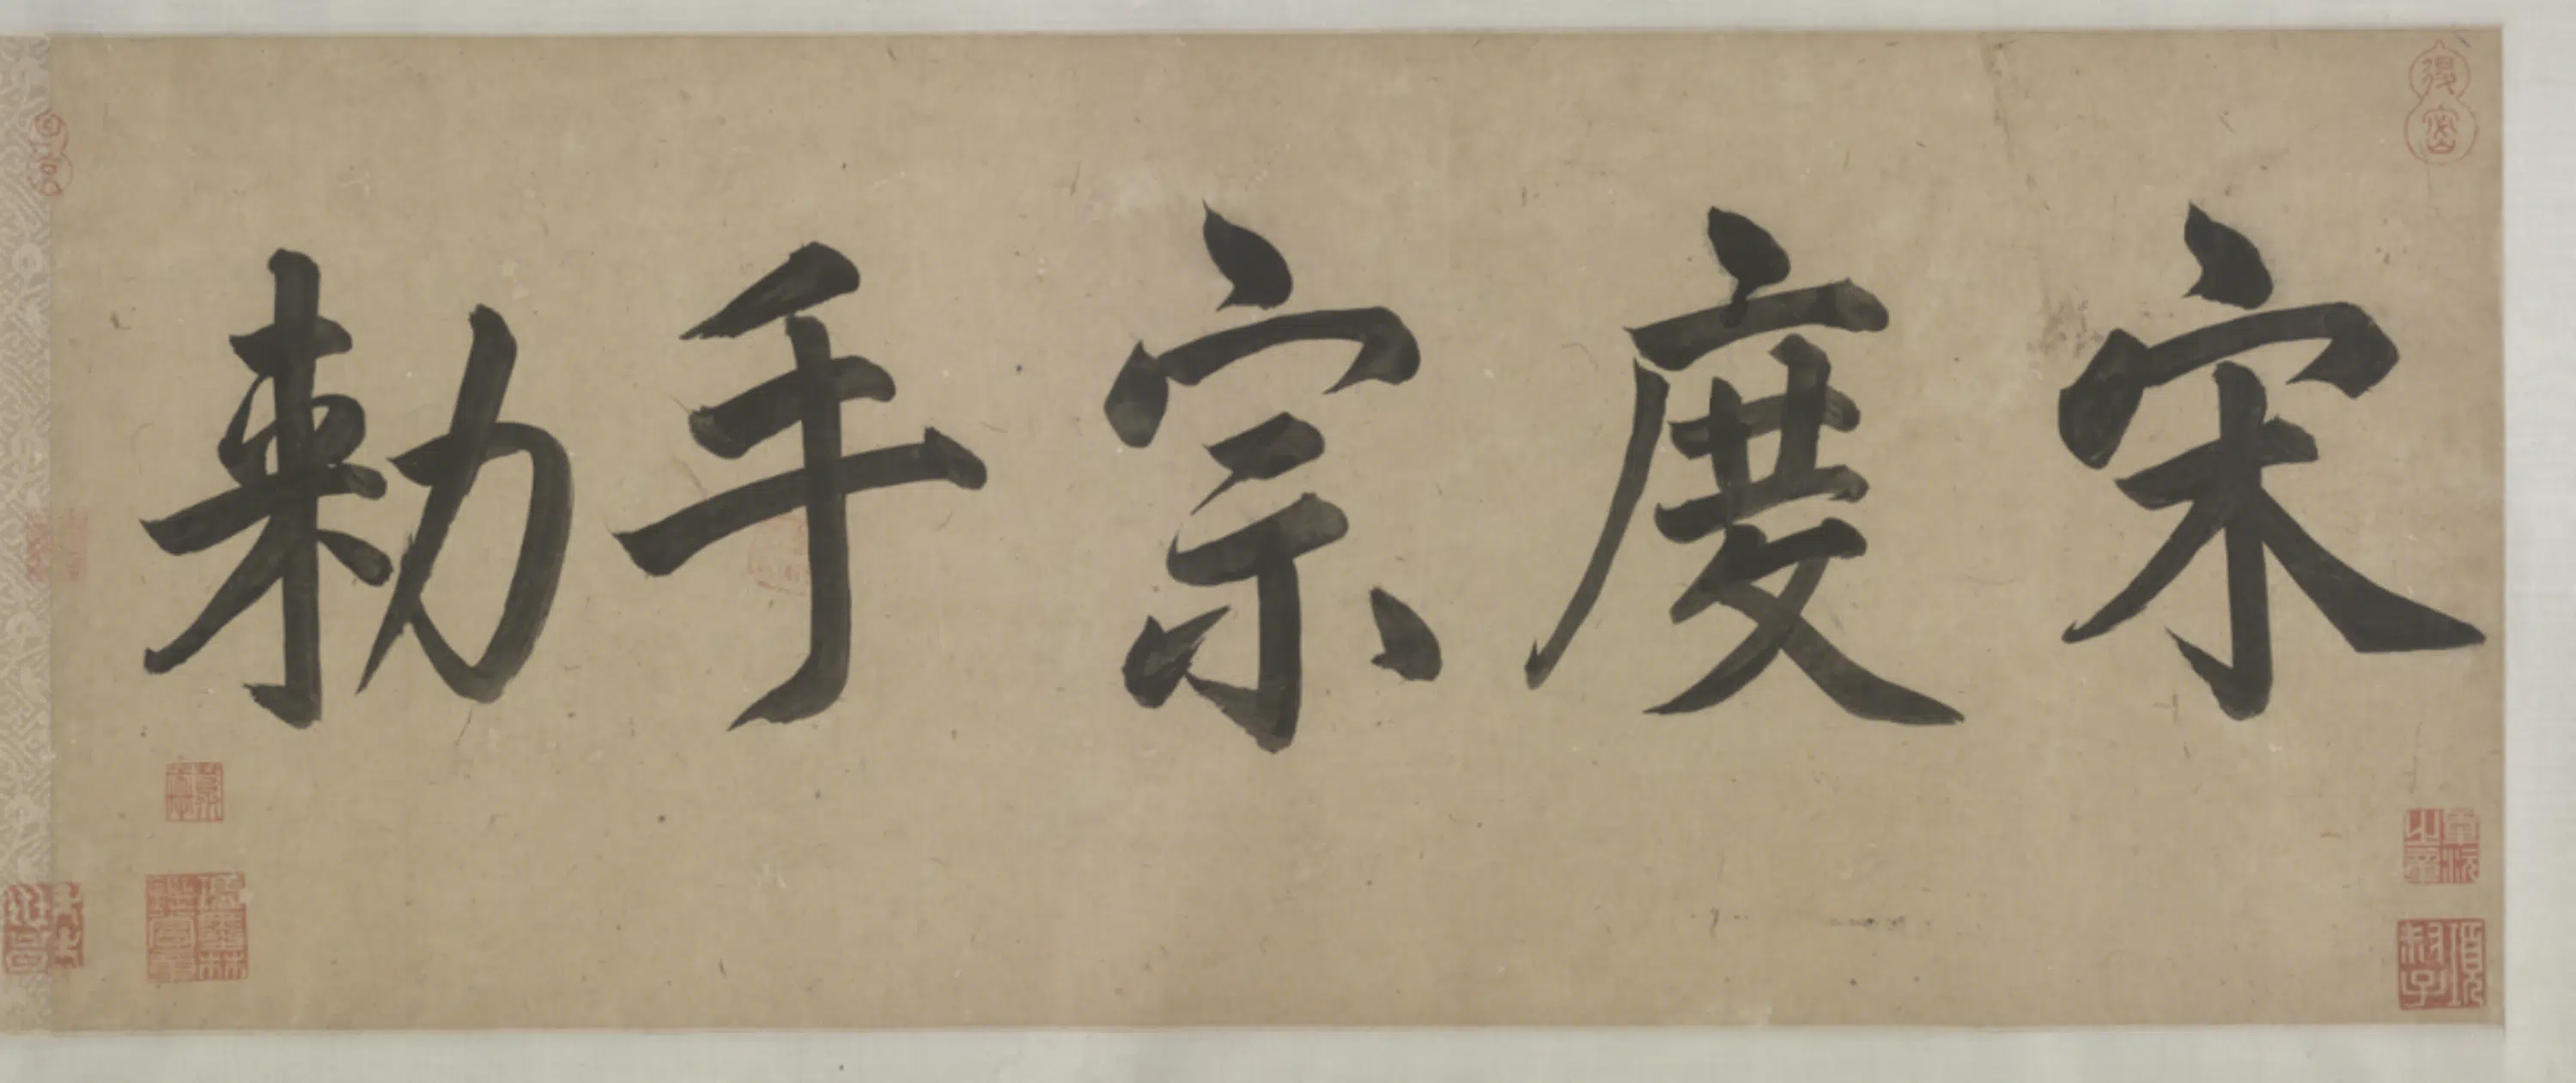 宋度宗手勅